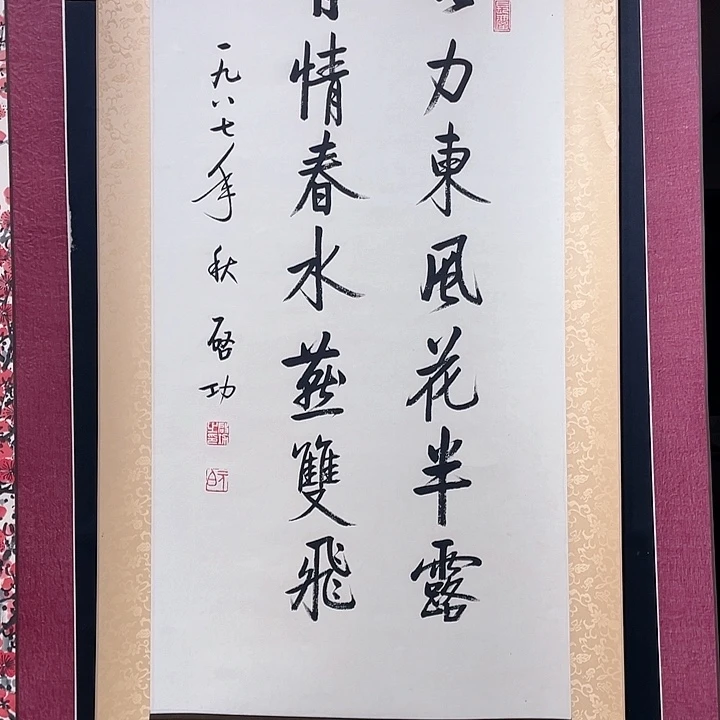 力東風花半露
情春水燕雙飛
一九八七年秋啓功